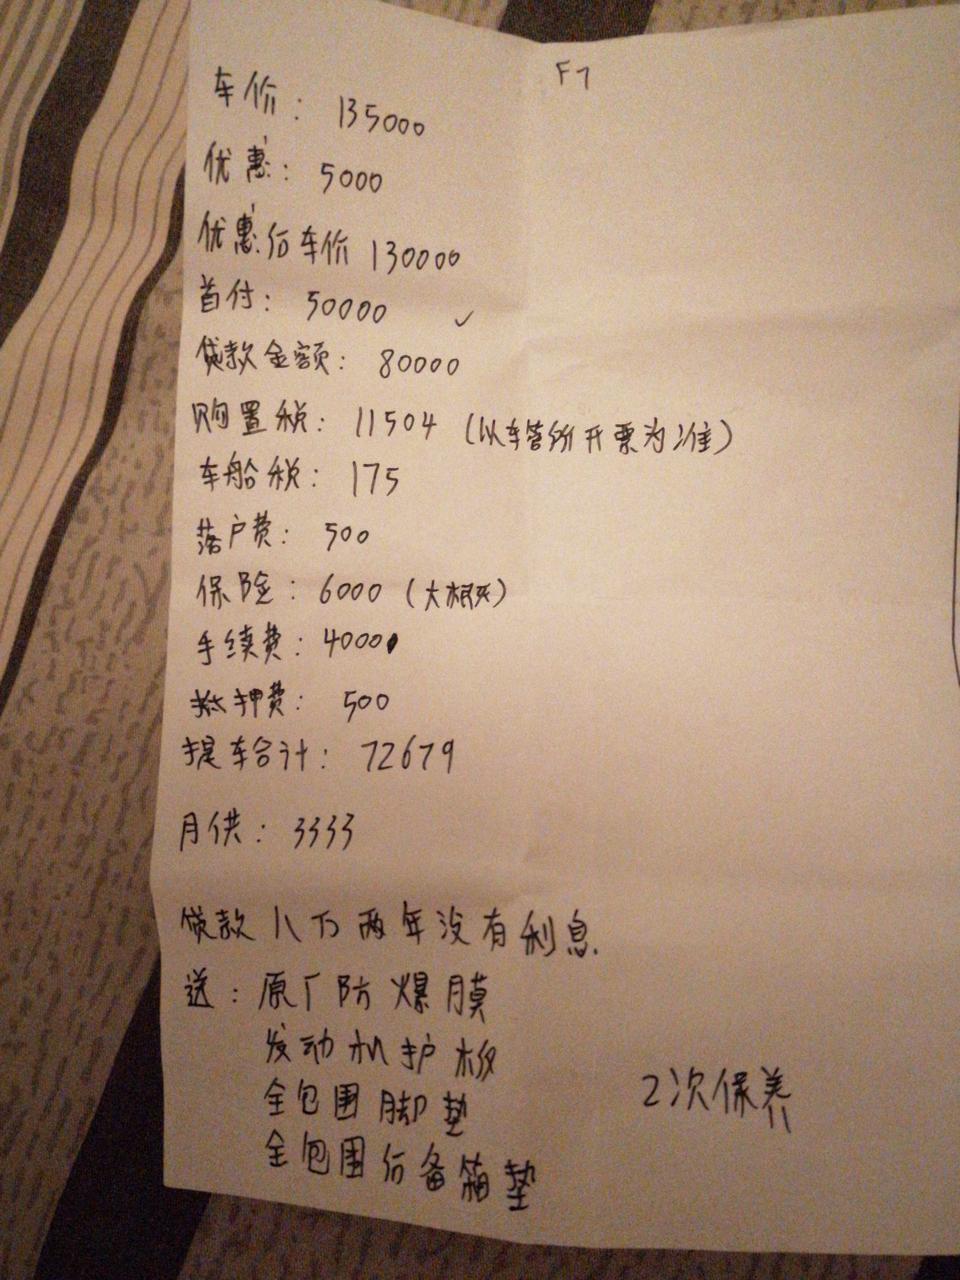 F7
车价：135000
优惠：5000
优惠后车价 130000
首付：50000 ✓
贷款金额：80000
购置税：11504（以车管所开票为准）
车船税：175
落户费：500
保险：6000（大概）
手续费：4000
抵押费：500
提车合计：72679
月供：3333
贷款八万两年没有利息.
送：原厂防爆膜
发动机护板
全包围脚垫
2次保养
全包围后备箱垫